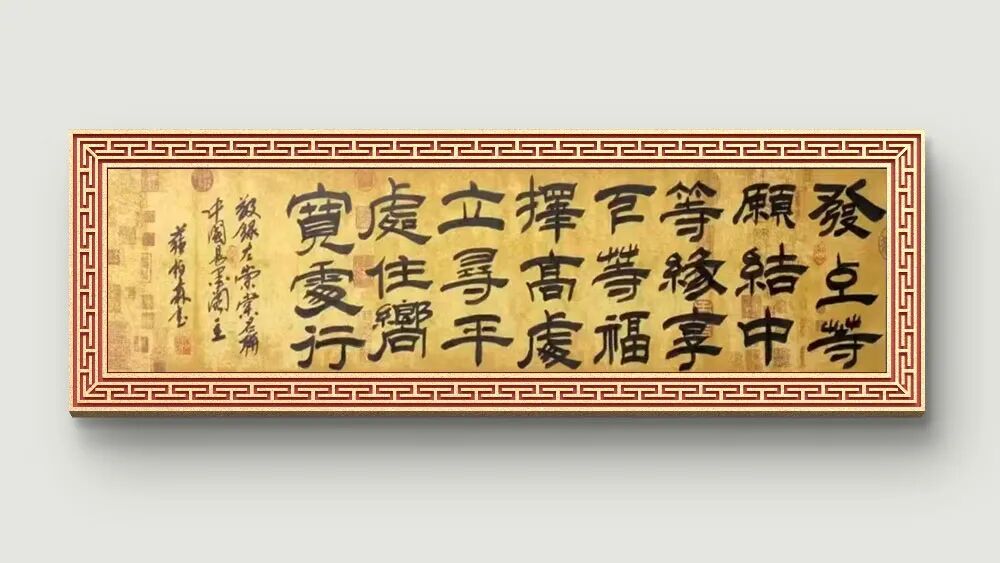 發上等
願結中
等緣享
下等福
擇高處
立尋平
處住嚮
寬處行
敬録左宗棠名聯
中國
書